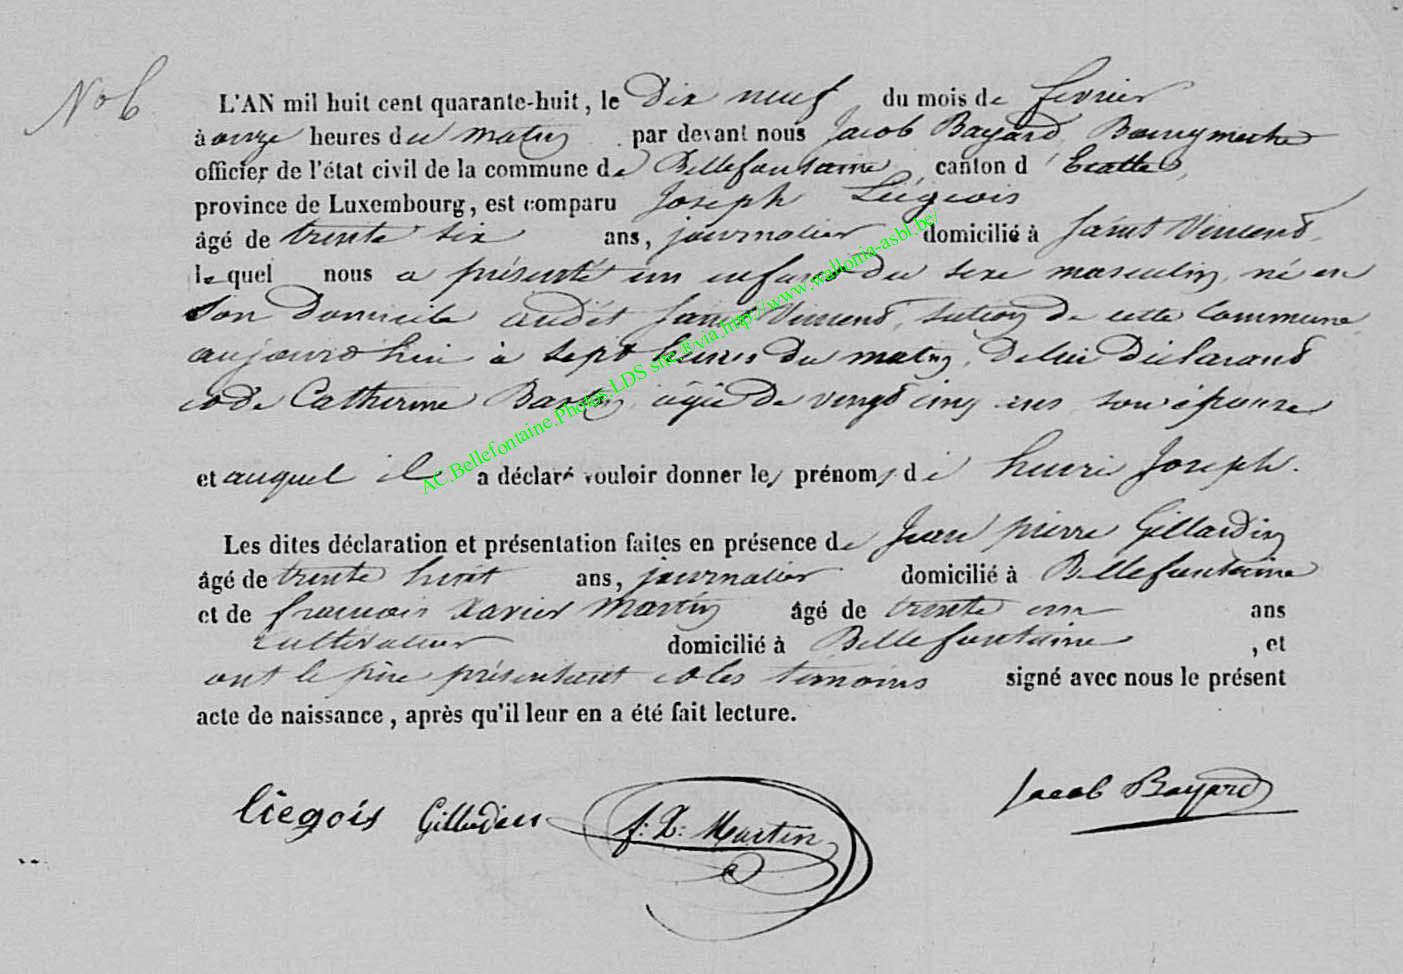 No 6
L'AN mil huit cent quarante-huit, le Dix neuf du mois de fevrier
à onze heures du matin par devant nous Jacob Bayard, Bourgmestre
officier de l'état civil de la commune de Bellefontaine, canton d' Etalle,
province de Luxembourg, est comparu Joseph Liégeois
âgé de trente six ans, journalier domicilié à Saint Vincent,
le quel nous a présenté un enfant du sexe masculin, né en
son Domicile audit Saint Vincent, section de cette Commune
aujourd'hui à sept heures Du matin, De lui Déclarant
et de Catherine âgée De vingt cinq ans son épouse
et auquel il a déclaré vouloir donner les prénoms de henri Joseph.
Les dites déclaration et présentation faites en présence de Jean pierre Gillardin
âgé de trente huit ans, journalier domicilié à Bellefontaine
et de francois Xavier Martin âgé de trente un ans
cultivateur domicilié à Bellefontaine, et
ont le père présentant et les témoins signé avec nous le présent
acte de naissance, après qu'il leur en a été fait lecture.
liegois Gillardin f: X: Martin Jacob Bayard
AC.Bellefontaine.Photos.LDS site & via http://www.wallonia-asbl.be/